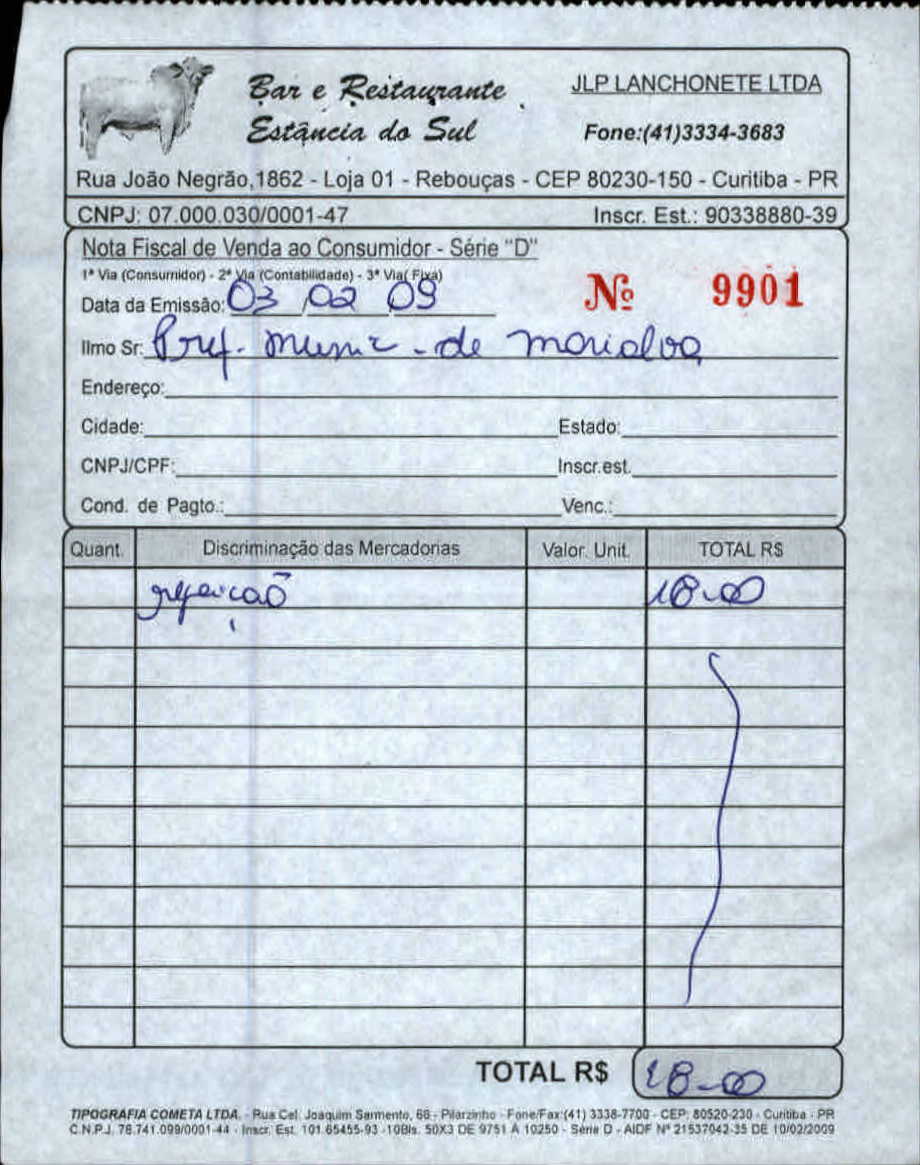 Bar e Restaurante
Estância do Sul
JLP LANCHONETE LTDA
Fone:(41)3334-3683
Rua João Negrão,1862 - Loja 01 - Rebouças - CEP 80230-150 - Curitiba - PR
CNPJ: 07.000.030/0001-47 Inscr. Est.: 90338880-39
Nota Fiscal de Venda ao Consumidor - Série "D"
1ª Via (Consumidor) - 2ª Via (Contabilidade) - 3ª Via( Fixa)
Data da Emissão: 03 02 09 Nº 9901
Ilmo Sr. Pref. Munic - de Marialva
Endereço:
Cidade: Estado:
CNPJ/CPF: Inscr.est.
Cond. de Pagto.: Venc.:
Quant. Discriminação das Mercadorias Valor. Unit. TOTAL R$
refeição 18-00
TOTAL R$ 18-00
TIPOGRAFIA COMETA LTDA. - Rua Cel. Joaquim Sarmento, 66 - Pilarzinho - Fone/Fax:(41) 3338-7700 - CEP: 80520-230 - Curitiba - PR
C.N.P.J. 76.741.099/0001-44 - Inscr. Est. 101.65455-93 -10Bls. 50X3 DE 9751 A 10250 - Série D - AIDF Nº 21537042-35 DE 10/02/2009